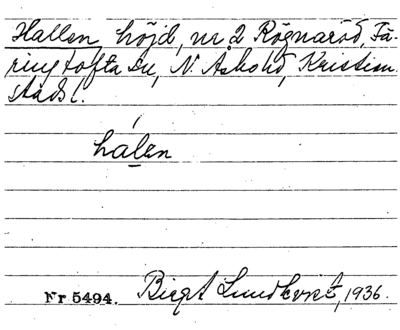 Hallen höjd, nr 2 Rögnaröd, Fä-
ringtofta sn, N. Åsbohd, Kristian-
stads l.
hálen
Nr 5494. Birgit Lundkvist, 1936.